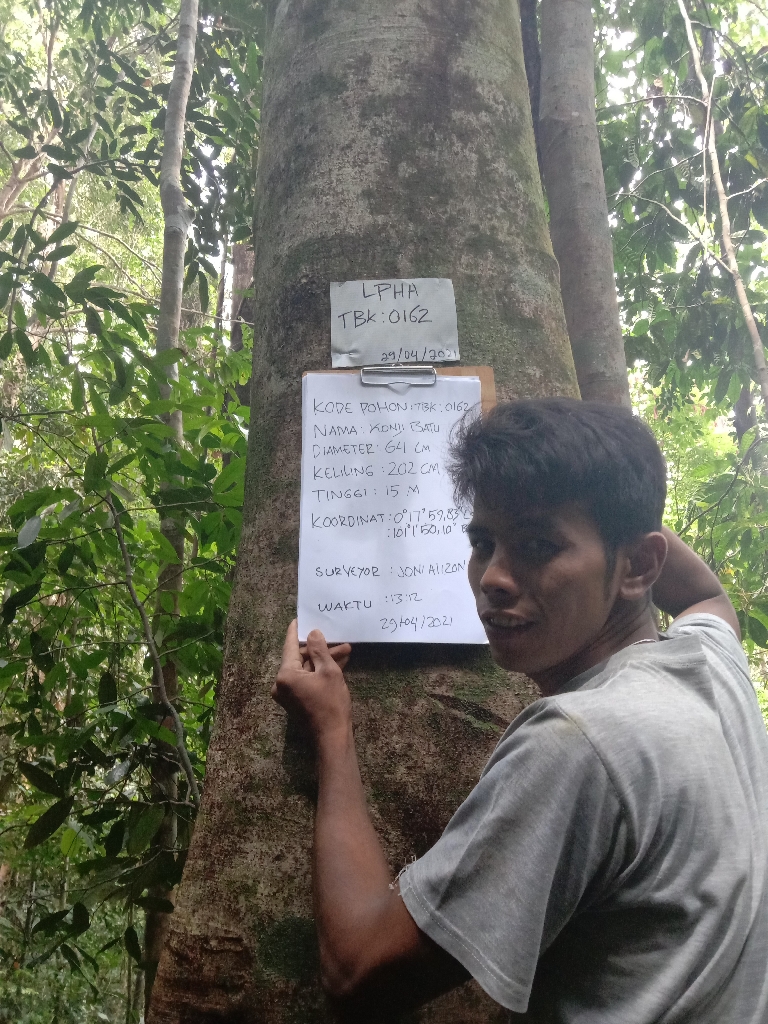 LPHA
TBK : 0162
29/04/2021
KODE POHON : TBK : 0162
NAMA : KONII BATU
DIAMETER : 64 CM
KELILING : 202 CM
TINGGI : 15 M
KOORDINAT : 0°17'59,83"
: 101°1'50,10"
SURVEYOR : JONI ALIZON
WAKTU : 13:12
29/04/2021